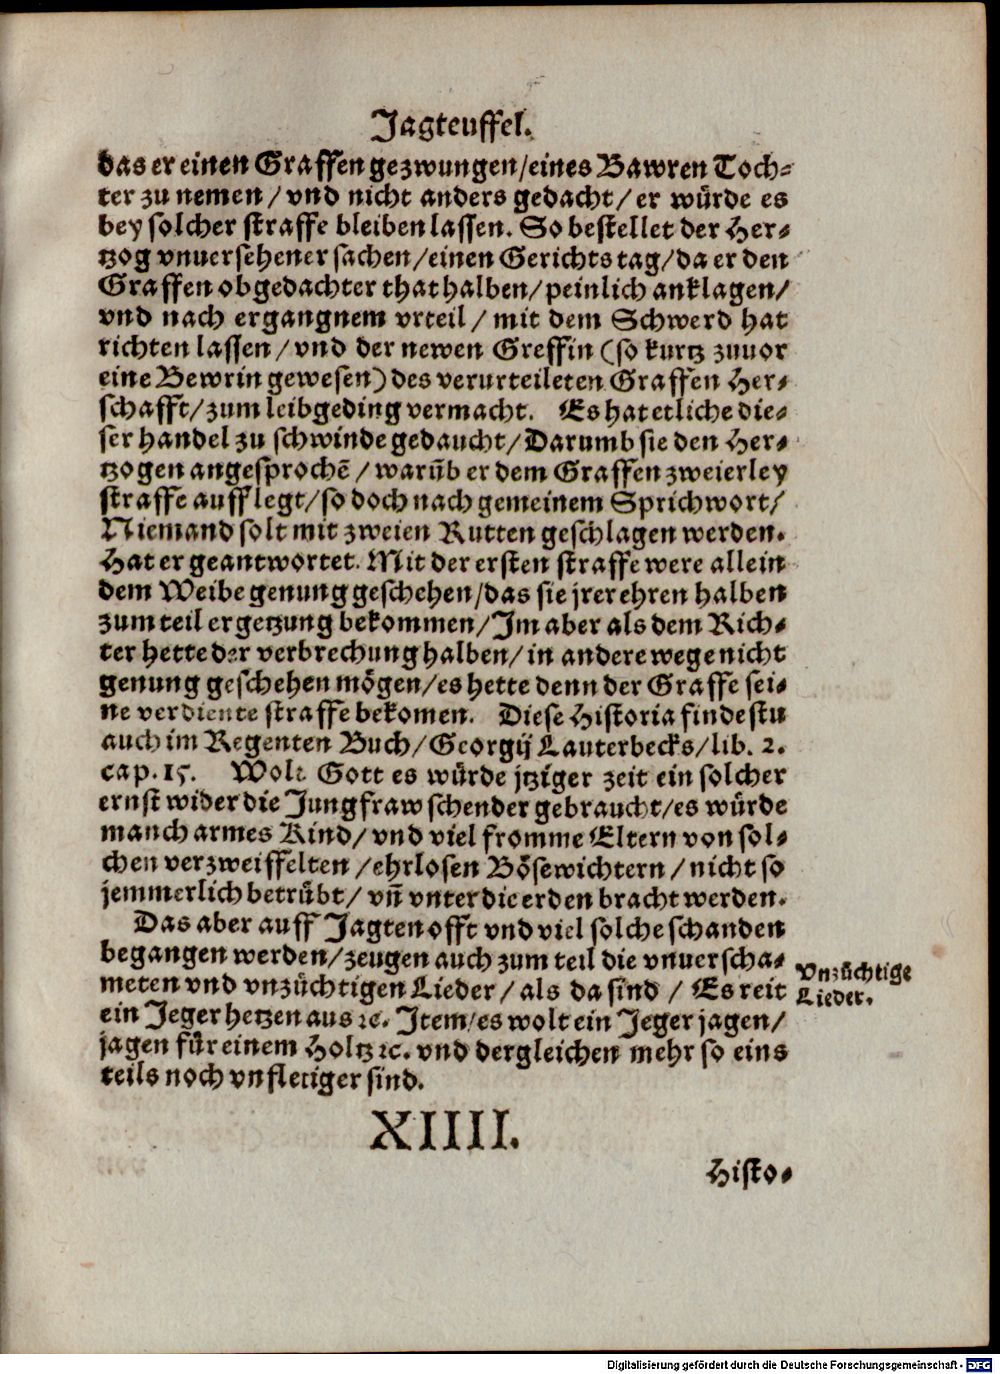 Jagteuffel.
das er einen Graffen gezwungen/eines Bawren Toch⸗
ter zu nemen/vnd nicht anders gedacht/er würde es
bey solcher straffe bleiben lassen. So bestellet der Her⸗
tzog vnuersehener sachen/einen Gerichts tag/da er den
Graffen obgedachter that halben/peinlich anklagen/
vnd nach ergangnem vrteil/mit dem Schwerd hat
richten lassen/vnd der newen Greffin (so kurtz zuuor
eine Bewrin gewesen) des verurteileten Graffen Her⸗
schafft/zum leibgeding vermacht. Es hat etliche die⸗
ser handel zu schwinde gedaucht/Darumb sie den Her⸗
tzogen angesprochē/warūb er dem Graffen zweierley
straffe aufflegt/so doch nach gemeinem Sprichwort/
Niemand solt mit zweien Rutten geschlagen werden.
Hat er geantwortet. Mit der ersten straffe were allein
dem Weibe genung geschehen/das sie jrer ehren halben
zum teil ergetzung bekommen/Im aber als dem Rich⸗
ter hette der verbrechung halben/in andere wege nicht
genung geschehen mögen/es hette denn der Graffe sei⸗
ne verdiente straffe bekomen. Diese Historia findestu
auch im Regenten Buch/Georgij Lauterbecks/lib. 2.
cap. 15. Wolt Gott es würde jtziger zeit ein solcher
ernst wider die Jungfrawschender gebraucht/es würde
manch armes Kind/vnd viel fromme Eltern von sol⸗
chen verzweiffelten/ehrlosen Bösewichtern/nicht so
jemmerlich betrübt/vn̄ vnter die erden bracht werden.
Das aber auff Jagten offt vnd viel solche schanden
begangen werden/zeugen auch zum teil die vnuerscha⸗
meten vnd vnzüchtigen Lieder/als da sind/Es reit
ein Jeger hetzen aus ꝛc. Item/es wolt ein Jeger jagen/
jagen für einem Holtz ꝛc. vnd dergleichen mehr so eins
teils noch vnfletiger sind.
Vnzüchtige
Lieder.
XIIII.
Histo⸗
Digitalisierung gefördert durch die Deutsche Forschungsgemeinschaft - DFG